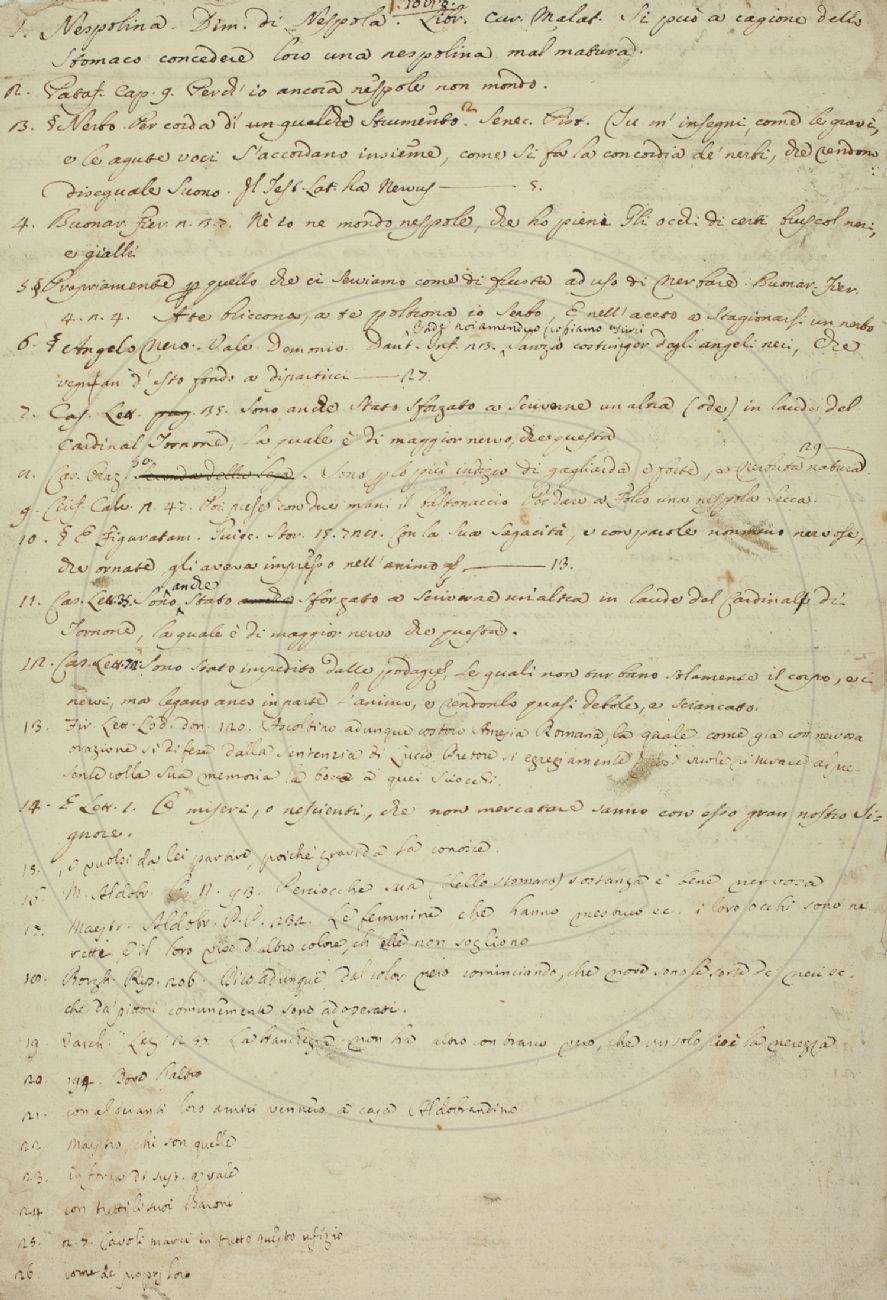 1. Nespolina. Dim. di Nespola. Libr. cur. Malat. Si può a cagione dello
stomaco concedere loro una nespolina mal matura.
2. Pataf. Cap. 9. Perch' io ancora nespole non mondo.
3. § Nerbo. Per corda di un qualche strumento. Senec. Pist. Tu m' insegni, come le gravi,
e le agute voci s'accordano insieme, come si fa la concordia de' nerbi, che rendono
diseguale suono. Il Test. Lat. ha Nervus
4. Buonar. Fier. n. Nè io ne mondo nespole, che ho pieni Gli occhi di certi buscol neri,
e gialli.
5. § Propriamente quello che ci serviamo come di frusta ad uso di Nerbare. Buonar. Fier.
4. n. 4. A te briccone, a te poltrona io serbo, E nell' aceto a stagionarsi un nerbo
6. § Angelo nero. Vale Demonio. Dant. Inf. Sanza costringer degli angeli neri, Che
vegnan d' esto fondo a dipartirci 27.
7. Cas. Lett. 35. Sono anche stato sforzato a scriverne un altra (ode) in laude del
Cardinal Tornone, la quale è di maggior nervo, che questa
29
Sono più indizio di gagliarda e forte, e nerboruta natura.
9. Ciriff. Calv. Poi prese con due mani il bastonaccio Per dare a Folco una nespola secca.
10. § E Figuratam. Guicc. Stor. 15. Con la sua sagacità, e con parole non meno nervose,
che ornate gli aveva impresso nell' animo 13.
11. Cas. Lett. 35. Sono anche stato sforzato a scriverne un'altra in laude del Cardinal di
Tornone, la quale è di maggior nervo che questa.
12. Cas. Lett. Sono stato impedito dalle podagre, le quali non turbano solamente il corpo, e i
nervi, ma legano anco in parte l'animo, e rendonlo quasi debole, e sciancato.
13. Fir. Lett. Lod. don. 120. Ascoltino adunque costoro Amesia Romana, la quale come già con nervosa
orazione si difese dalla sentenzia di Lucio Pretore si egregiamente
sente colla sua memoria la bocca a quei sciocchi.
14. E Lett. 1. O miseri, o nescienti, che non mercatare sanno con esso gran nostro Si=
gnore.
15. e vuolsi da lei partire, poichè gravida la conosce.
16. M. Aldobr. Perciocchè sua (dello stomaco) sostanza è bene nervosa
17. Maestr. Aldobr. P. P. 232. Le femmine che hanno mestruo ec. i loro occhi sono ne
retti, e il loro viso d'altro colore, ch' elle non sogliono
18. Borgh. Rip. 206. Dico adunque, dal color nero cominciando, che nove sono le sorte de' neri ec.
che da' pittori comunemente sono adoperati.
19. Varch. Lez. La bianchezza non ha altro contrario vero, che un solo cioè la nerezza
20. 194. Dove l'altro
21. con alquanti loro amici vennero a casa Aldobrandino
22. Maestro, chi son quelle
23. In forza di sust. vale
24. con tutti li suoi Baroni
25. Cavoli marci in tutto questo ufizio
26. come de' proprj loro